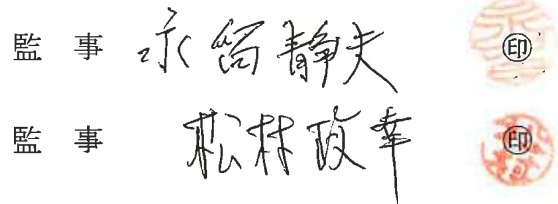 監 事 永留静夫 ㊞
監 事 松村政幸 ㊞